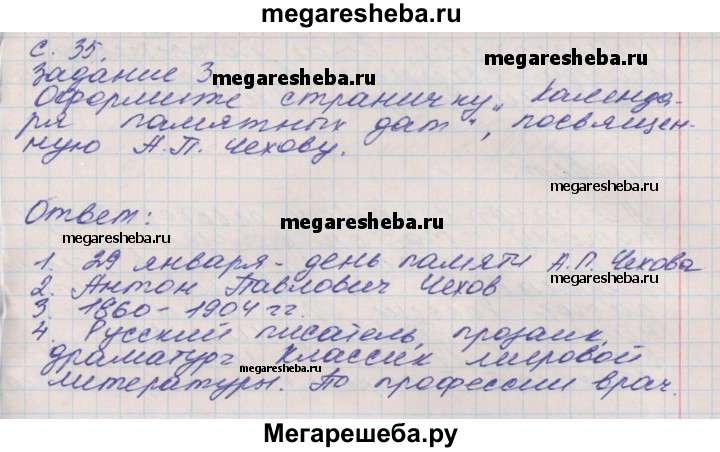 megaresheba.ru
с. 35.
Задание 3
megaresheba.ru
Оформите страничку „Календа-
ря памятных дат“, посвящен-
ную А.П. Чехову.
megaresheba.ru
Ответ:
megaresheba.ru
megaresheba.ru
1. 29 января - день памяти А.П. Чехова
2. Антон Павлович Чехов
3. 1860 - 1904 гг.
4. Русский писатель, прозаик,
драматург. Классик мировой
megaresheba.ru
литературы. По профессии врач.
Мегарешеба.ру